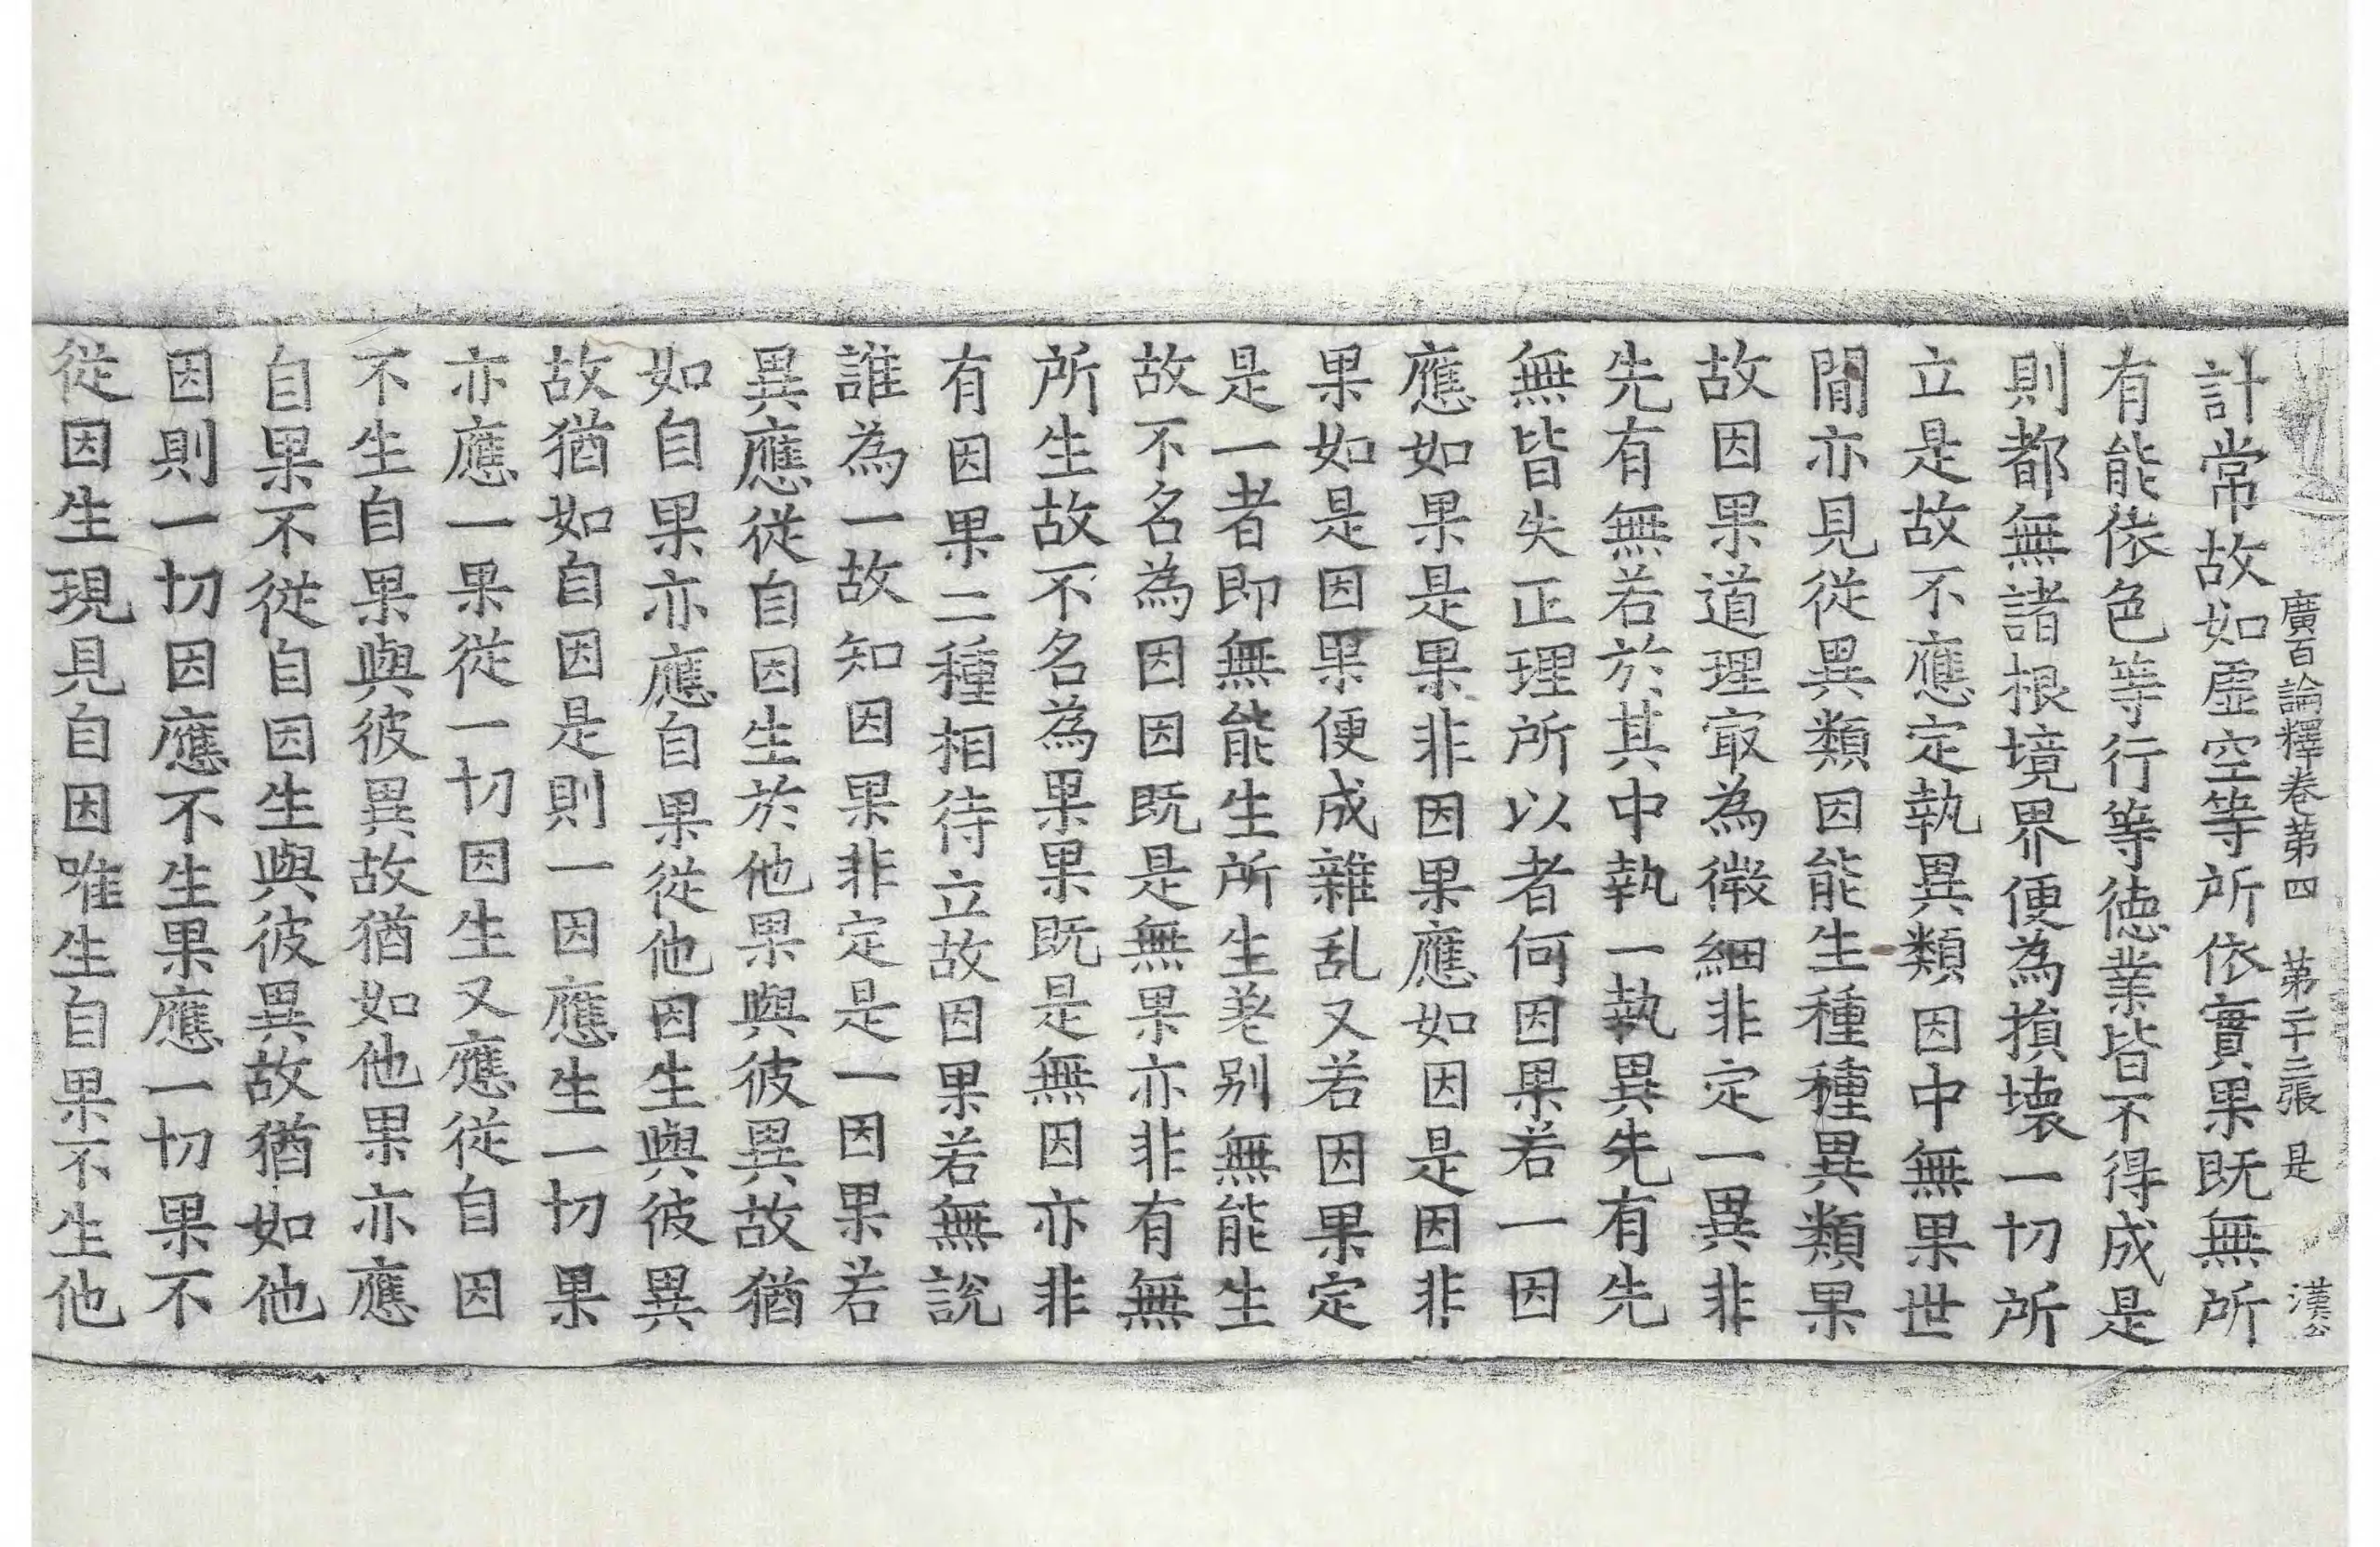 廣百論釋卷第四 第二十三張 是 漢公
計常故如虛空等所依實果既無所
有能依色等行等德業皆不得成是
則都無諸根境界便為損壞一切所
立是故不應定執異類因中無果世
閒亦見從異類因能生種種異類果
故因果道理㝡為微細非定一異非
先有無若於其中執一執異先有先
無皆失正理所以者何因果若一因
應如果是果非因果應如因是因非
果如是因果便成雜乱又若因果定
是一者即無能生所生差別無能生
故不名為因因既是無果亦非有無
所生故不名為果果既是無因亦非
有因果二種相待立故因果若無說
誰為一故知因果非定是一因果若
異應從自因生於他果與彼異故猶
如自果亦應自果從他因生與彼異
故猶如自因是則一因應生一切果
亦應一果從一切因生又應從自因
不生自果與彼異故猶如他果亦應
自果不從自因生與彼異故猶如他
因則一切因應不生果應一切果不
從因生現見自因唯生自果不生他